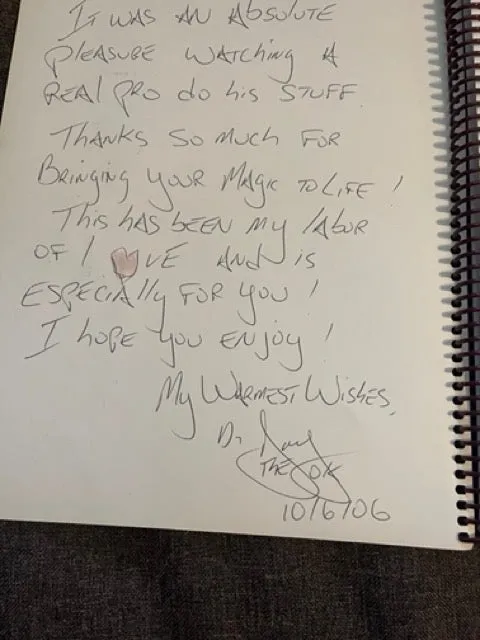 It was an absolute
pleasure watching a
real pro do his stuff
Thanks so much for
Bringing your magic to life !
This has been my labor
of l♥ve and is
especially for you !
I hope you enjoy !
My Warmest Wishes,
Dr
The
10/6/06